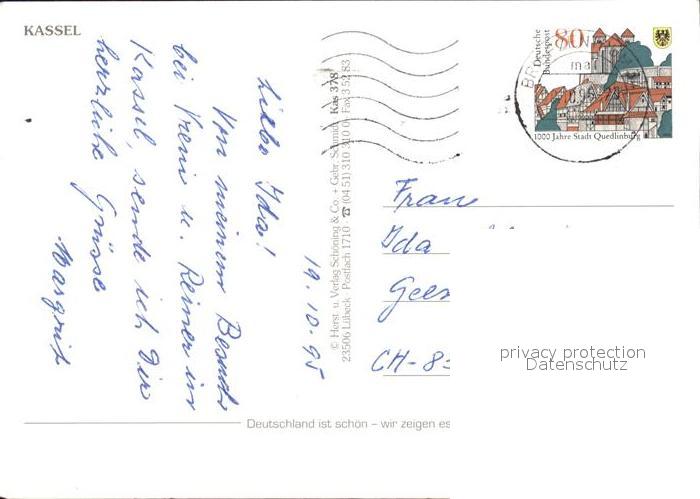 KASSEL
19.10.95
Liebe Ida!
Von meinem Besuch
bei Vreni u. Reiner in
Kassel, sende ich Dir
herzliche Grüsse
Margrit
© Herst. u. Verlag Schöning & Co. + Gebr. Schmidt
Kas 378
23506 Lübeck · Postfach 1710 · ☎ (04 51) 310 310 · Fax 3 52 83
Deutsche
Bundespost
80
1000 Jahre Stadt Quedlinburg
Frau
Ida
CH-8
privacy protection
Datenschutz
Deutschland ist schön – wir zeigen es